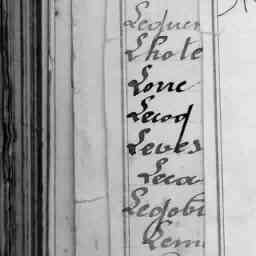 Lequer
Lhote
Lonc
Lecoq
Leves
Leca
Legobi
Lem